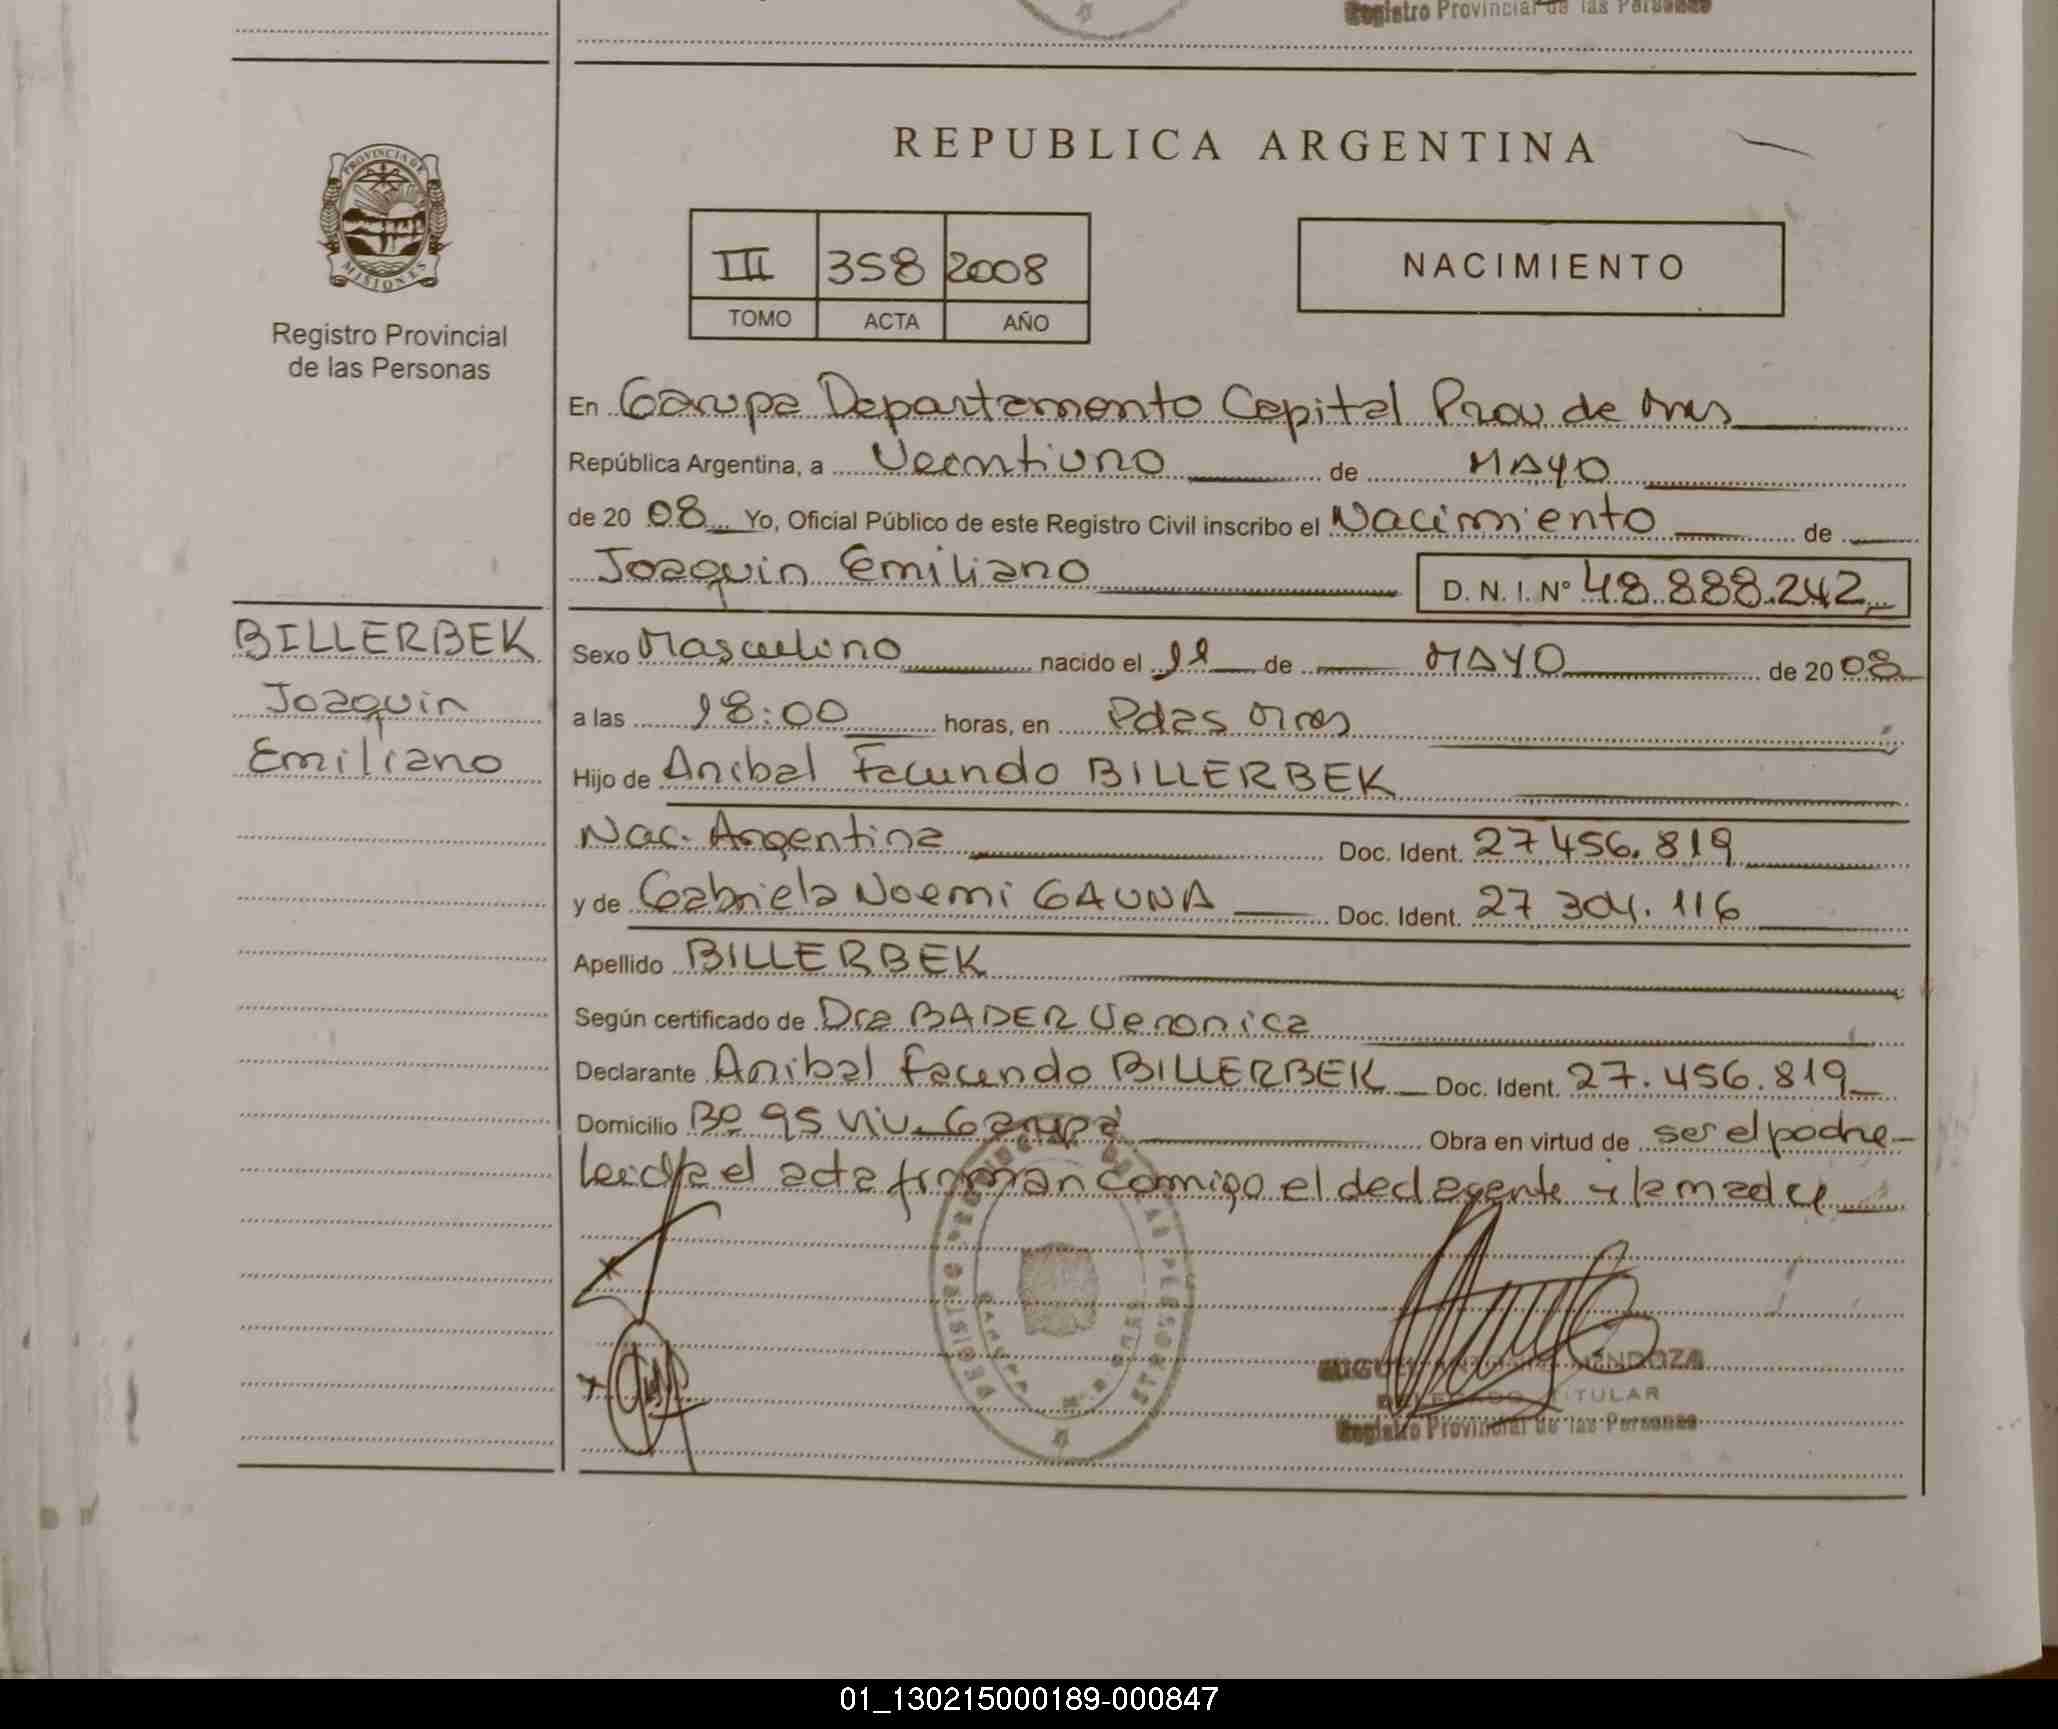 Registro Provincial de las Personas
REPUBLICA ARGENTINA
PROVINCIA DE
MISIONES
Registro Provincial
de las Personas
III 358 2008
TOMO ACTA AÑO
NACIMIENTO
En Garupa Departamento Capital Prov de Mnes
República Argentina, a Veintiuno de MAYO
de 20 08 Yo, Oficial Público de este Registro Civil inscribo el Nacimiento de
Joaquin Emiliano D. N. I. N° 48.888.242
BILLERBEK
Joaquin
Emiliano
Sexo Masculino nacido el 11 de MAYO de 20 08
a las 18:00 horas, en Pdas Mnes
Hijo de Anibal Facundo BILLERBEK
Nac. Argentina Doc. Ident. 27 456.819
y de Gabriela Noemi GAUNA Doc. Ident. 27 304.116
Apellido BILLERBEK
Según certificado de Dra BADER Veronica
Declarante Anibal Facundo BILLERBEK Doc. Ident. 27.456.819
Domicilio Bº 95 Viv. Garupá Obra en virtud de ser el padre
Leida el acta firman conmigo el declarante y la madre
MENDOZA
DELEGADO TITULAR
Registro Provincial de las Personas
01_130215000189-000847